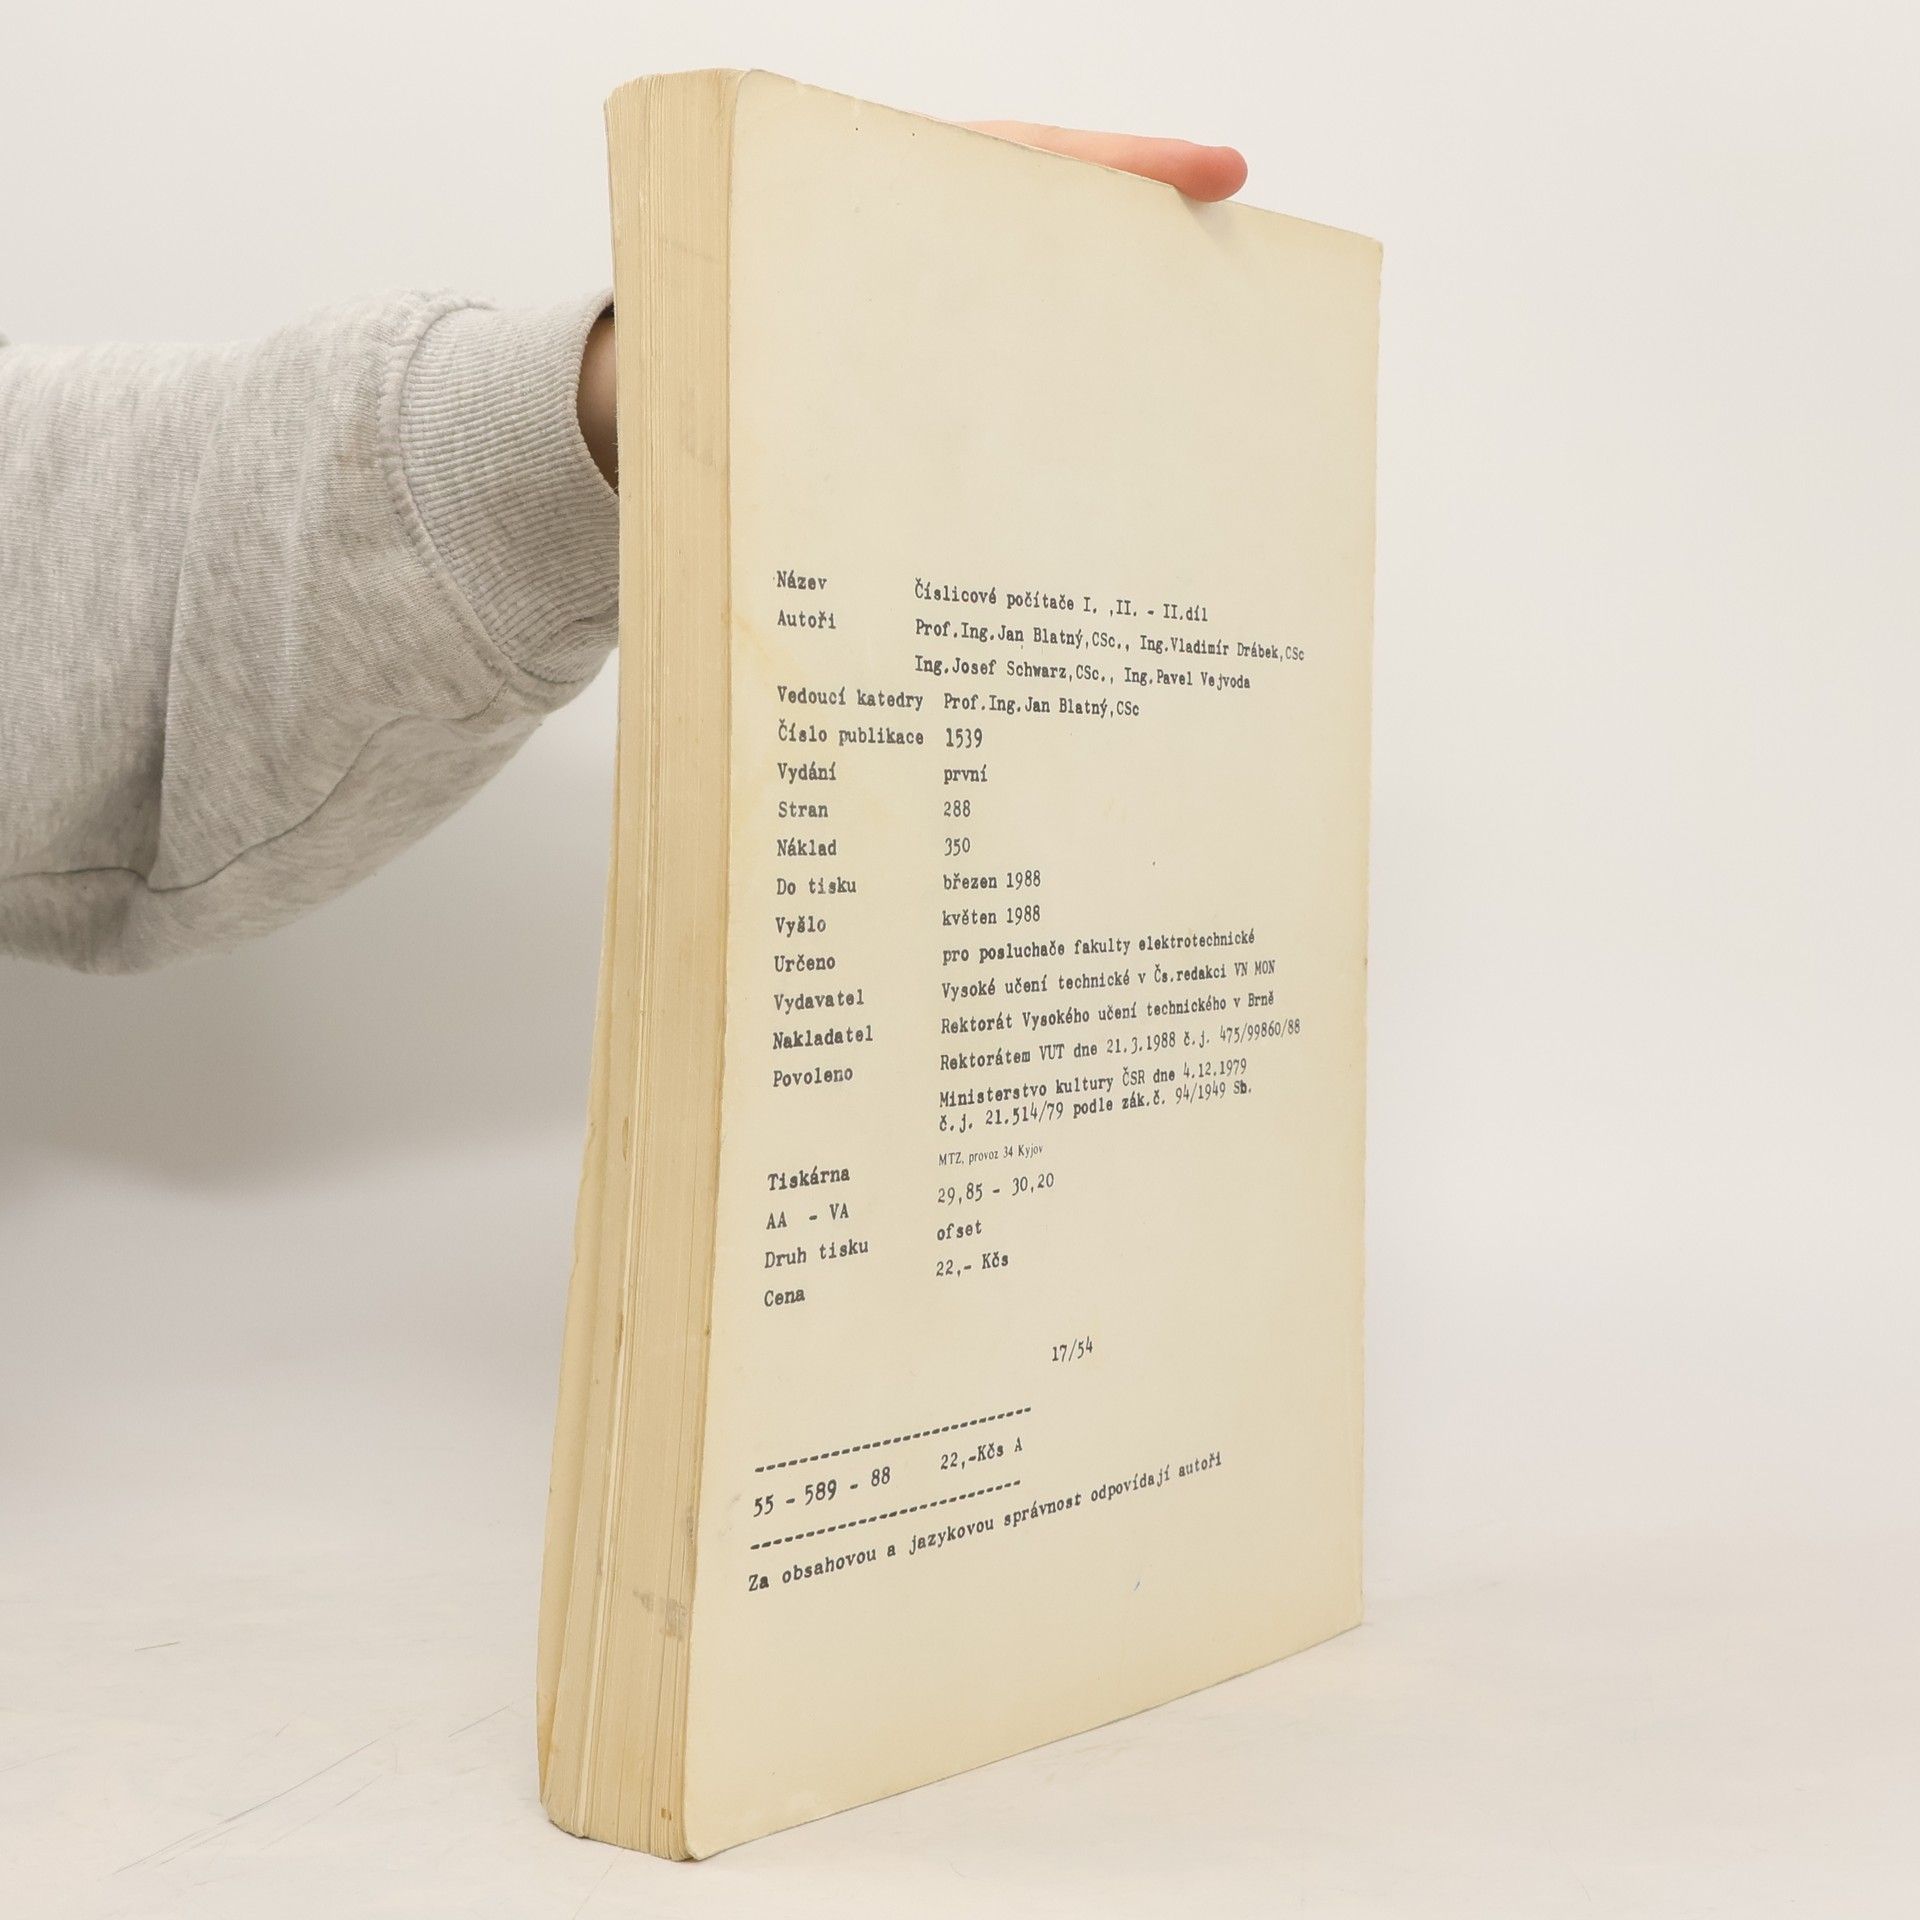 Název Číslicové počítače I. ,II. - II.díl
Autoři Prof.Ing.Jan Blatný,CSc., Ing.Vladimír Drábek,CSc
Ing.Josef Schwarz,CSc., Ing.Pavel Vejvoda
Vedoucí katedry Prof.Ing.Jan Blatný,CSc
Číslo publikace 1539
Vydání první
Stran 288
Náklad 350
Do tisku březen 1988
Vyšlo květen 1988
Určeno pro posluchače fakulty elektrotechnické
Vydavatel Vysoké učení technické v Čs.redakci VN MON
Nakladatel Rektorát Vysokého učení technického v Brně
Povoleno Rektorátem VUT dne 21.3.1988 č.j. 475/99860/88
Ministerstvo kultury ČSR dne 4.12.1979
č.j. 21.514/79 podle zák.č. 94/1949 Sb.
Tiskárna MTZ, provoz 34 Kyjov
AA - VA 29,85 - 30,20
Druh tisku ofset
Cena 22,- Kčs
17/54
55 - 589 - 88 22,-Kčs A
Za obsahovou a jazykovou správnost odpovídají autoři